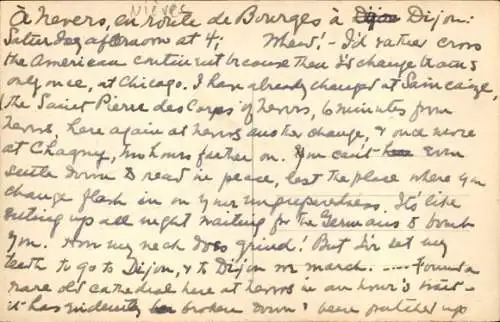 NIEVES
À Nevers, en route de Bourges à Dijon:
Saturday afternoon at 4; Whew! - I'd rather cross
the American continent because then I'd change trains
only once, at Chicago. I have already changed at Saincaize,
(the Saint Pierre des Corps of Nevers, 6 minutes from
Nevers, here again at Nevers another change, & once more
at Chagny, two hours farther on. You can't even
settle down to read in peace, lest the place where you
change flash in on your unpreparedness. It's like
sitting up all night waiting for the Germans to bomb
you. How my neck does grind! But I've set my
teeth to go to Dijon, & to Dijon we march. .... Found a
rare old cathedral here at Nevers in an hour's wait -
it has evidently broken down & been patched up